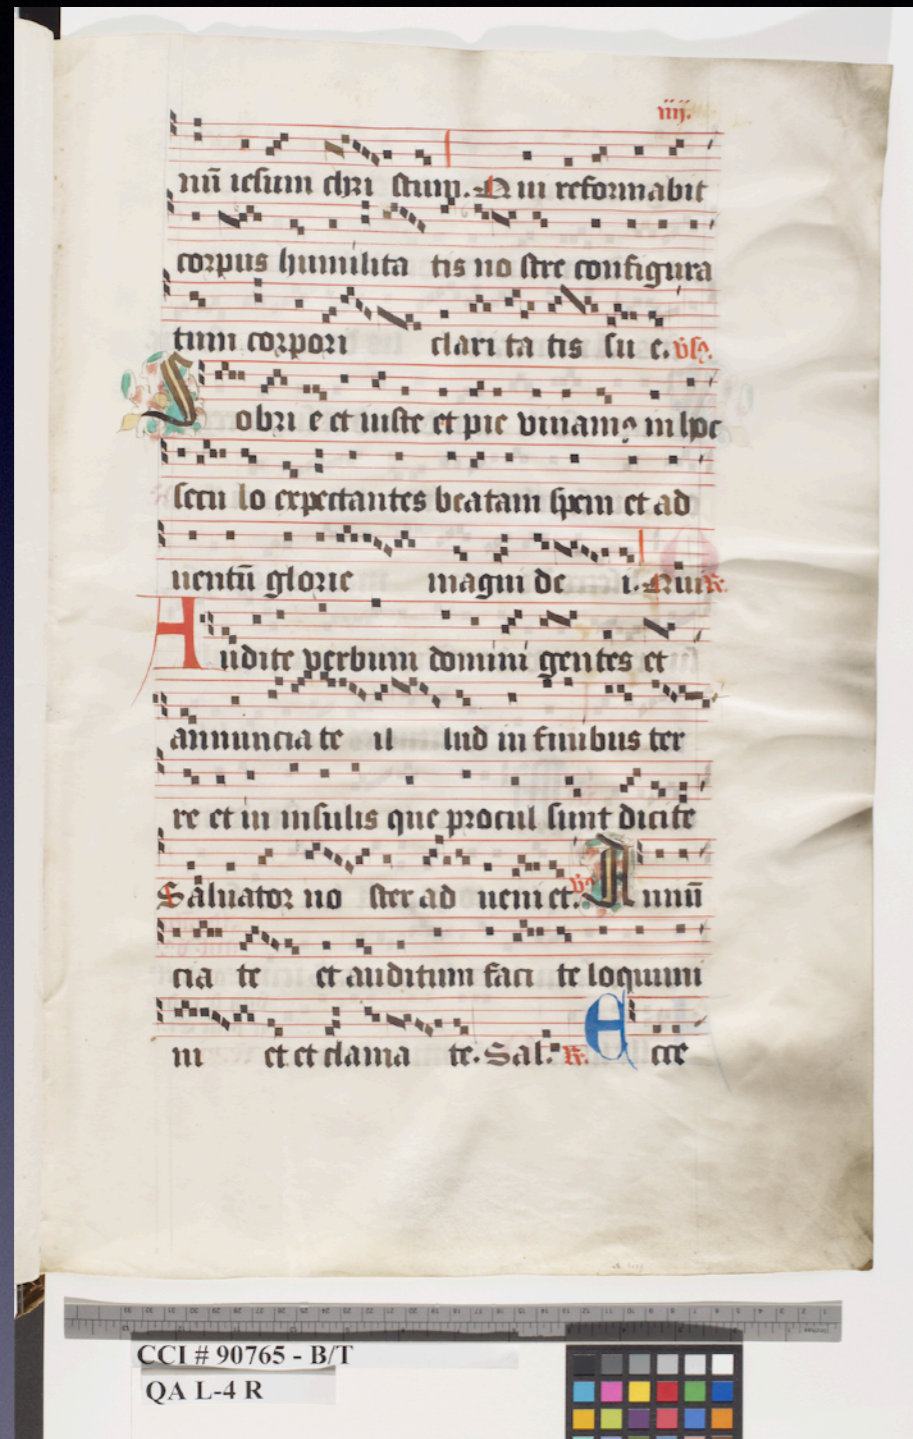 iiij.
nū iesum chri stum. Qui reformabit
corpus humilita tis no stre configura
tum corpori clari ta tis su e. vs.
Sobri e et iuste et pie viuamꝰ in hoc
secu lo expectantes beatam spem et ad
uentū glorie magni de i. Qui R.
Audite verbum domini gentes et
annuncia te il lud in finibus ter
re et in insulis que procul sunt dicite
Saluator no ster ad ueniet. vs Annū
cia te et auditum faci te loquimi
ni et et clama te. Sal. R. Ecce
CCI # 90765 - B/T
QA L-4 R